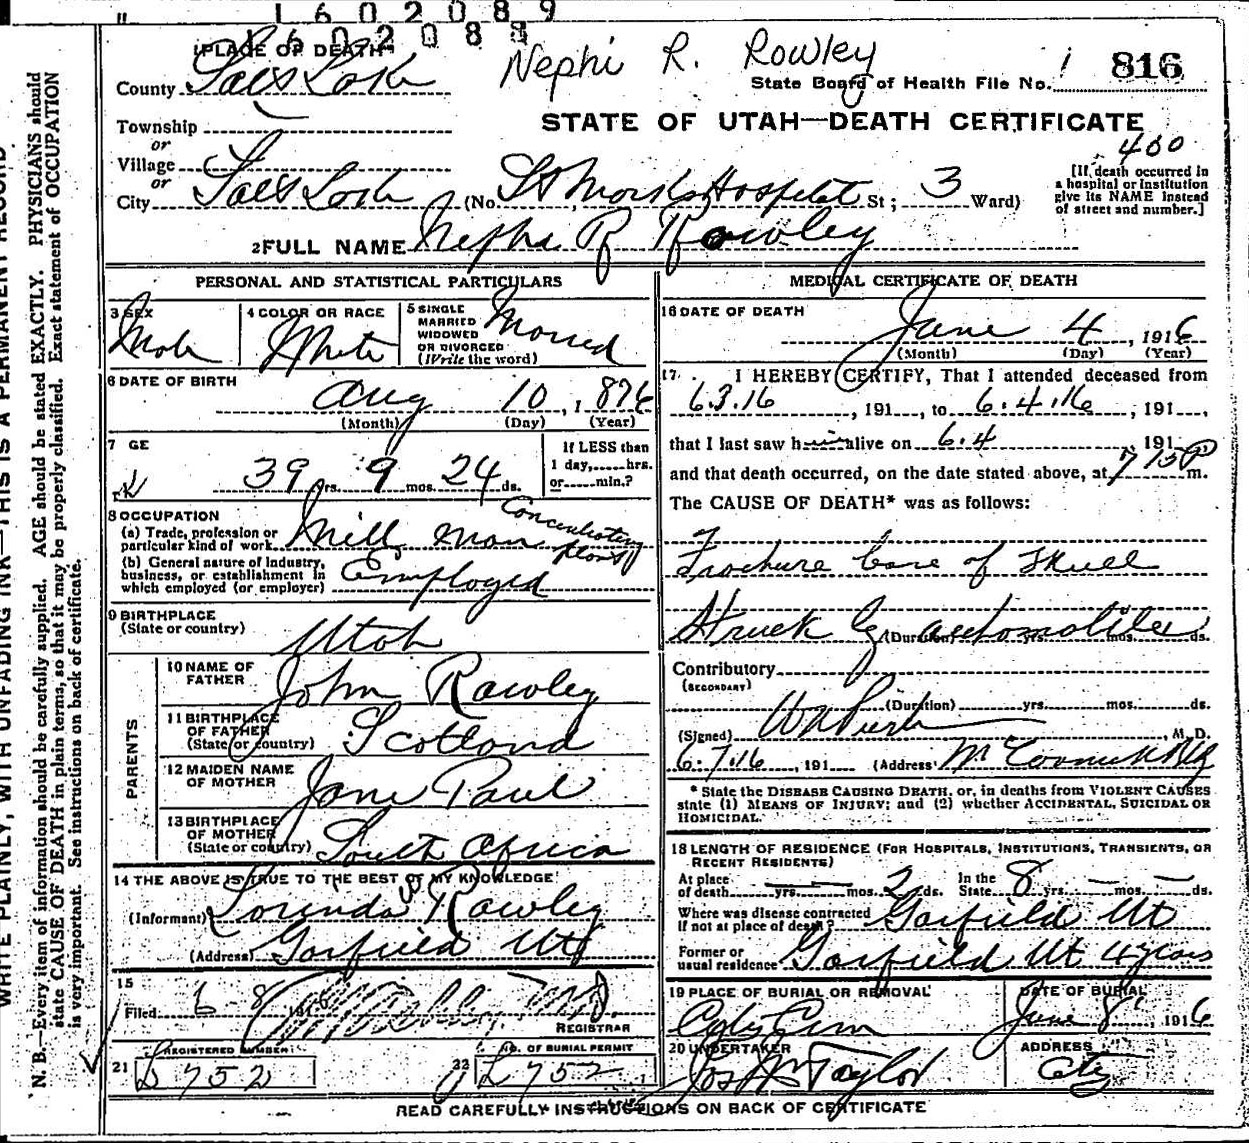 1602089
160208
1 PLACE OF DEATH
Nephi R. Rowley
County Salt Lake
State Board of Health File No. 816
Township
STATE OF UTAH—DEATH CERTIFICATE
or
Village
400
or
City Salt Lake (No. St Marks Hospital St; 3 Ward)
[If death occurred in
a hospital or institution
give its NAME instead
of street and number.]
2 FULL NAME Nephi R Rowley
PERSONAL AND STATISTICAL PARTICULARS
3 SEX
Male
4 COLOR OR RACE
White
5 SINGLE
MARRIED
WIDOWED
OR DIVORCED
(Write the word)
Married
6 DATE OF BIRTH
Aug 10, 1876
(Month) (Day) (Year)
7 GE
39 yrs. 9 mos. 24 ds.
If LESS than
1 day,......hrs.
or......min.?
8 OCCUPATION
(a) Trade, profession or
particular kind of work
Mill man Concentrating plant
(b) General nature of industry,
business, or establishment in
which employed (or employer)
Employed
9 BIRTHPLACE
(State or country)
Utah
PARENTS
10 NAME OF
FATHER
John Rowley
11 BIRTHPLACE
OF FATHER
(State or country)
Scotland
12 MAIDEN NAME
OF MOTHER
Jane Paul
13 BIRTHPLACE
OF MOTHER
(State or country)
South Africa
14 THE ABOVE IS TRUE TO THE BEST OF MY KNOWLEDGE
(Informant) Lorinda Rowley
(Address) Garfield Ut
15
Filed 6-8
REGISTRAR
21 REGISTERED NUMBER
L 752
22 NO. OF BURIAL PERMIT
L 752
MEDICAL CERTIFICATE OF DEATH
16 DATE OF DEATH
June 4, 1916
(Month) (Day) (Year)
17. I HEREBY CERTIFY, That I attended deceased from
6.3.16, 191...., to 6.4.16, 191....,
that I last saw h im alive on 6.4, 191
and that death occurred, on the date stated above, at 7 15 P m.
The CAUSE OF DEATH* was as follows:
Fracture base of Skull
Struck by automobile
(Duration) yrs. mos. ds.
Contributory
(SECONDARY)
(Duration) yrs. mos. ds.
(Signed) M. D.
6.7.16, 191 (Address) McCornick Bldg
* State the DISEASE CAUSING DEATH, or, in deaths from VIOLENT CAUSES
state (1) MEANS OF INJURY; and (2) whether ACCIDENTAL, SUICIDAL OR
HOMICIDAL.
18 LENGTH OF RESIDENCE (FOR HOSPITALS, INSTITUTIONS, TRANSIENTS, OR
RECENT RESIDENTS)
At place
of death yrs. mos. 2 ds.
In the
State 8 yrs. mos. ds.
Where was disease contracted
if not at place of death? Garfield Ut
Former or
usual residence Garfield Ut 4 years
19 PLACE OF BURIAL OR REMOVAL
City Cem
DATE OF BURIAL
June 8, 1916
20 UNDERTAKER
Jos Wm Taylor
ADDRESS
City
READ CAREFULLY INSTRUCTIONS ON BACK OF CERTIFICATE
WRITE PLAINLY, WITH UNFADING INK—THIS IS A PERMANENT RECORD
N. B.—Every item of information should be carefully supplied. AGE should be stated EXACTLY. PHYSICIANS should
state CAUSE OF DEATH in plain terms, so that it may be properly classified. Exact statement of OCCUPATION
is very important. See instructions on back of certificate.